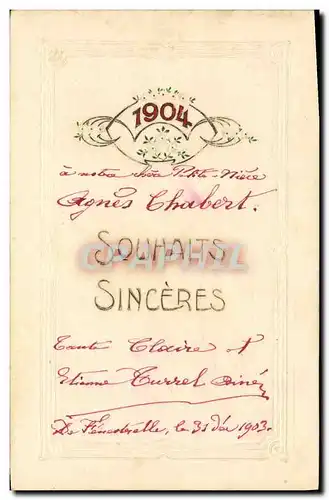 1904
à notre chère Petite-Nièce
Agnès Chabert.
SOUHAITS
CAPHILA
SINCÈRES
Tante Claire et
Etienne Turrel Ainé
De Fénestrelle, le 31 Déc 1903.